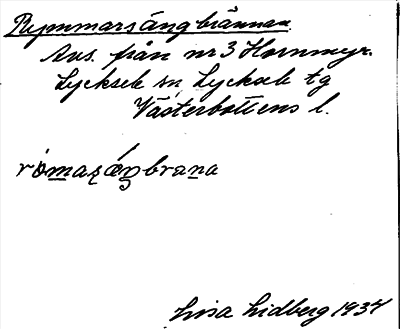 Rymmarsängbrännan.
Avs. från nr 3 Hornmyr.
Lycksele sn, Lycksele tg
Västerbottens l.
Lisa Lidberg 1934